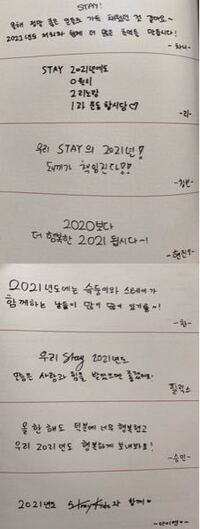 STAY!
올해 정말 좋은 일들로 가득 채웠던 것 같아요~
2021년도 저희와 함께 더 많은 추억을 만듭시다!
-차니-
STAY 2021년에도
0원히
2리노랑
1라운드 합시당♡
-리-
우리 STAY의 2021년!
돼끼가 책임진다!!
-창빈-
2020보다
더 행복한 2021 됩시다~!
-현진-
2021년도에는 슼둥이와 스테이가
함께하는 날들이 많이 많이 있기를~!
-한-
우리 Stay 2021년도
많은 사랑과 힘을 받았으면 좋겠어요!
필릭스
올 한해도 덕분에 너무 행복했고
우리 2021년도 행복하게 보내봐요!
-승민-
2021년도 Stray Kids와 함께
-아이엔-